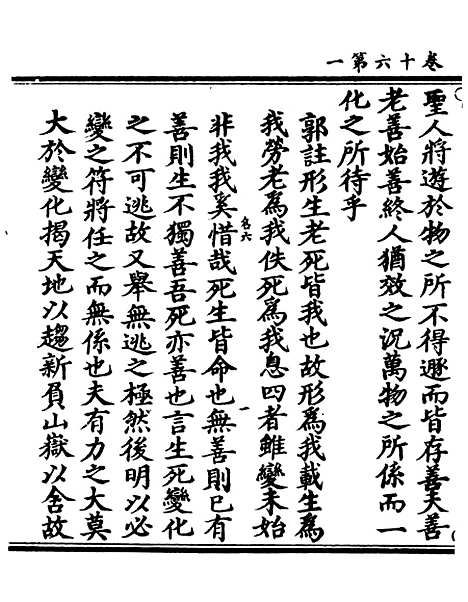 卷十六第一
聖人將遊於物之所不得遯而皆存善夭善
老善始善終人猶效之況萬物之所係而一
化之所待乎
郭註形生老死皆我也故形為我載生為
我勞老為我佚死為我息四者雖變未始
非我我奚惜哉死生皆命也無善則已有
善則生不獨善吾死亦善也言生死變化
之不可逃故又舉無逃之極然後明以必
變之符將任之而無係也夫有力之大莫
大於變化揭天地以趨新負山嶽以舍故
名六
一